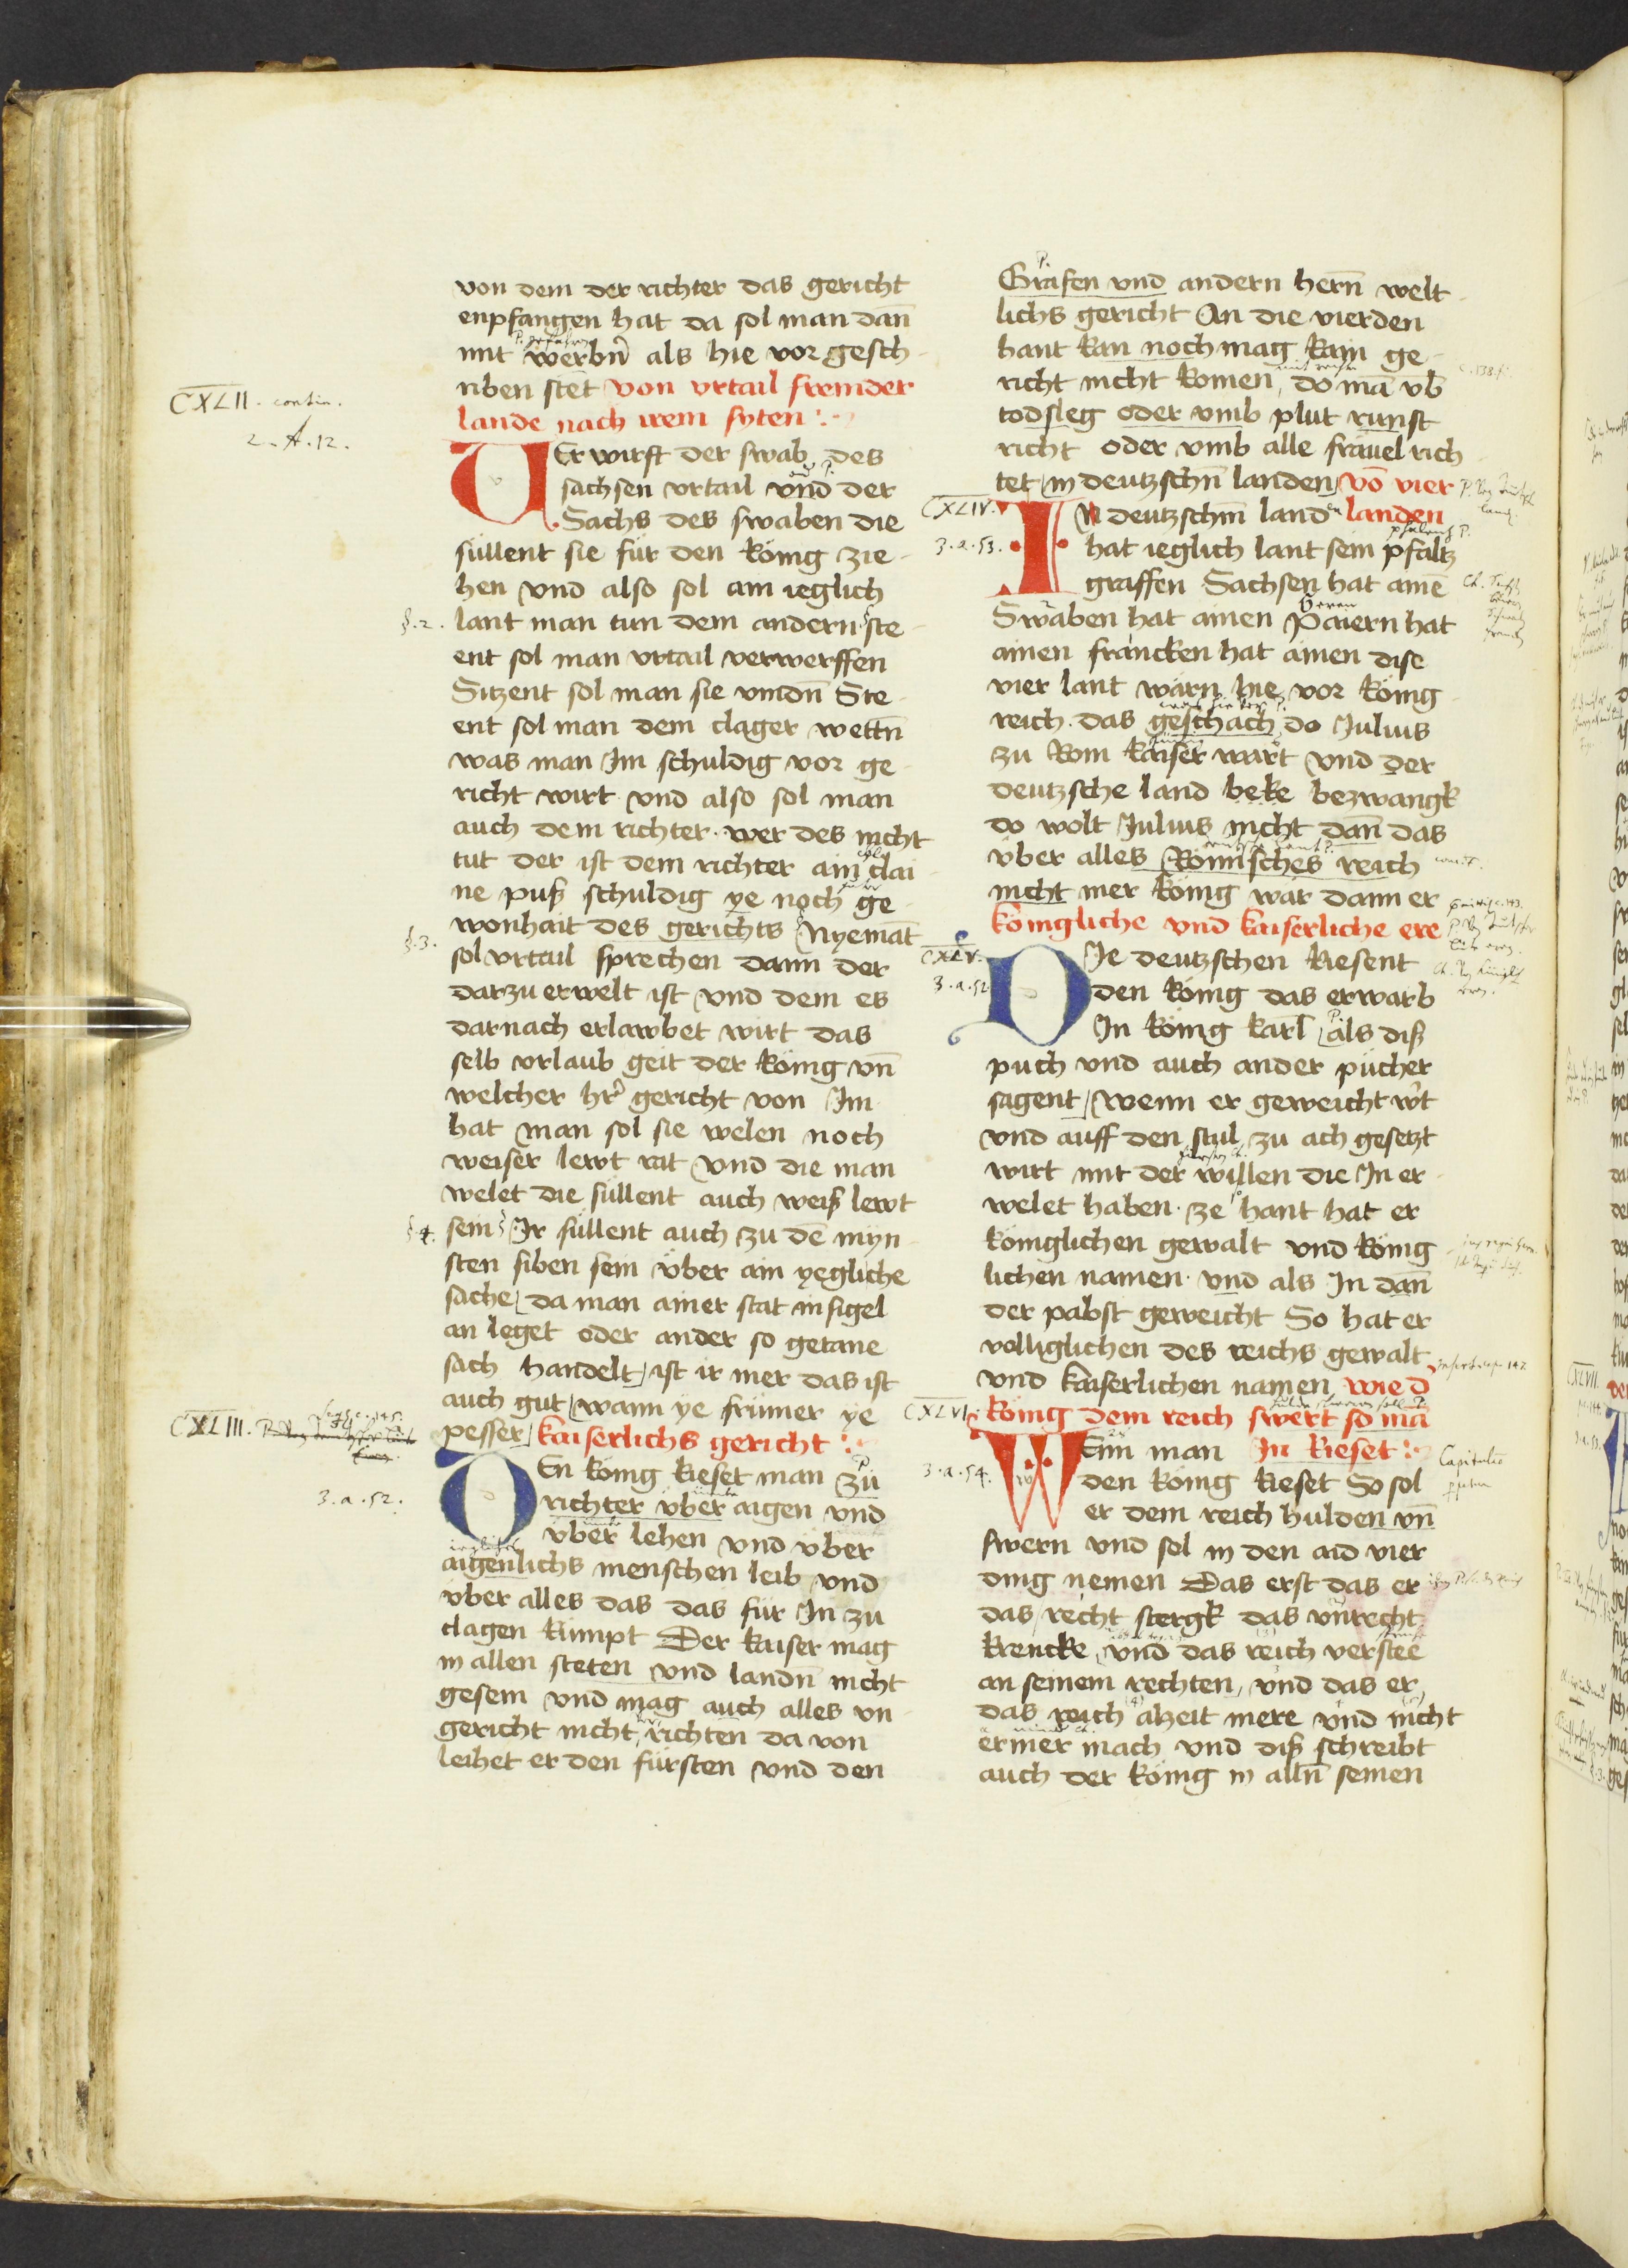 von dem der richter das gericht
enpfangen hat da sol man dan̄
mit werbn̄ als hie vor gesch
riben stet von vrtail fremder
lande nach irem syten
CXLII. contin.
2. A. 12.
VEr wirft der swab des
sachsen vrtail vnd der
Sachs des swaben die
süllent sie für den König zie
hen vnd also sol ain ieglich
§. 2. lant man tun dem andern ste
ent sol man vrtail verwerffen
Sitzent sol man sie vindn̄ Ste
ent sol man dem clager wettn̄
was man Im schuldig vor ge
richt wirt vnd also sol man
auch dem richter wer des nicht
tut der ist dem richter ain clai
ne puß schuldig ye noch ge
wonhait des gerichts Nyemāt
§. 3. sol vrtail sprechen dann der
darzu erwelt ist vnd dem es
darnach erlawbet wirt das
selb vrlaub geit der König vn̄
welcher hr̄ gericht von Im
hat man sol sie welen noch
weiser lewt rat vnd die man
welet die süllent auch weiß lewt
§ 4. sein Ir süllent auch zu dē myn
sten siben sein über ain yegliche
sache da man ainer stat insigel
an leget oder ander so getane
sach handelt ist ir mer das ist
auch gut wann ye frümer ye
CXLIII. pesser kaiserlichs gericht
3. a. 52.
DEn König kieset man zü
richter über aigen vnd
über lehen vnd über
aigenlichs menschen leib vnd
über alles das das für In zu
clagen kumpt Der kaiser mag
in allen steten vnd landn̄ nicht
gesein vnd mag auch alles vn
gericht nicht richten da von
leihet er den fürsten vnd den
Grafen vnd andern hern̄ welt
lichs gericht An die vierden
hant kan noch mag kain ge
richt nicht komen do mā vb̄
todsleg oder vmb plut runst
richt oder vmb alle fräuel rich
tet in deutzschn̄ landen vō vier
CXLIV. IN deutzschn̄ landen landen
3. a. 53. hat ieglich lant sein pfaltz
graffen Sachsen hat ainē
Swaben hat ainen Paiern hat
ainen francken hat ainen dise
vier lant warn hie vor König
reich das geschach do Julius
zu Rom kaiser wart vnd der
deutzsche land beke bezwangk
do wolt Julius nicht dan̄ das
über alles Römisches reich
nicht mer König war dann er
königliche vnd kaiserliche ere
CXLV. DJe deutzschen kiesent
3. a. 52. den König das erwarb
In König karl als diß
puch vnd auch ander pücher
sagent wenn er geweicht wirt
vnd auff den stul zu ach gesetzt
wirt mit der willen die In er
welet haben ze hant hat er
königlichen gewalt vnd König
lichen namen vnd als In dan̄
der pabst geweicht So hat er
volliglichen des reichs gewalt
vnd kaiserlichen namen wie d
CXLVI. König dem reich swert so mā
WEnn man In kieset
3. a. 54. den König kieset So sol
er dem reich hulden vn̄
swern vnd sol in den aid vier
ding nemen Das erst das er
das recht stergk das vnrecht
krencke vnd das reich verstee
an seinem rechten vnd das er
das reich alzeit mere vnd nicht
ermer mach vnd diß schreibt
auch der König in alln̄ seinen